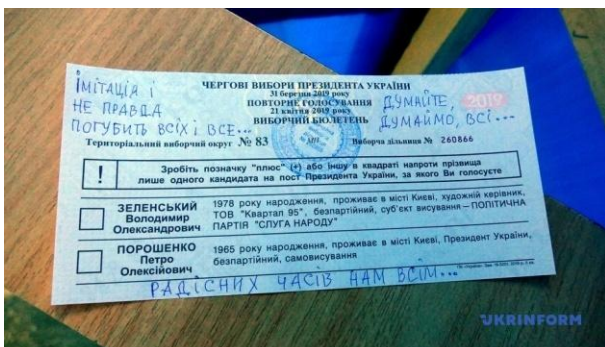 ЧЕРГОВІ ВИБОРИ ПРЕЗИДЕНТА УКРАЇНИ
31 березня 2019 року
ПОВТОРНЕ ГОЛОСУВАННЯ
21 квітня 2019 року
ВИБОРЧИЙ БЮЛЕТЕНЬ
2019
ІМІТАЦІЯ І
НЕ ПРАВДА
ПОГУБИТЬ ВСІХ І ВСЕ...
ДУМАЙТЕ,
ДУМАЙМО, ВСІ...
Територіальний виборчий округ № 83
Виборча дільниця № 260866
! Зробіть позначку "плюс" (+) або іншу в квадраті напроти прізвища
лише одного кандидата на пост Президента України, за якого Ви голосуєте
ЗЕЛЕНСЬКИЙ
Володимир
Олександрович
1978 року народження, проживає в місті Києві, художній керівник,
ТОВ "Квартал 95", безпартійний, суб'єкт висування – ПОЛІТИЧНА
ПАРТІЯ "СЛУГА НАРОДУ"
ПОРОШЕНКО
Петро
Олексійович
1965 року народження, проживає в місті Києві, Президент України,
безпартійний, самовисування
РАДІСНИХ ЧАСІВ НАМ ВСІМ...
UKRINFORM